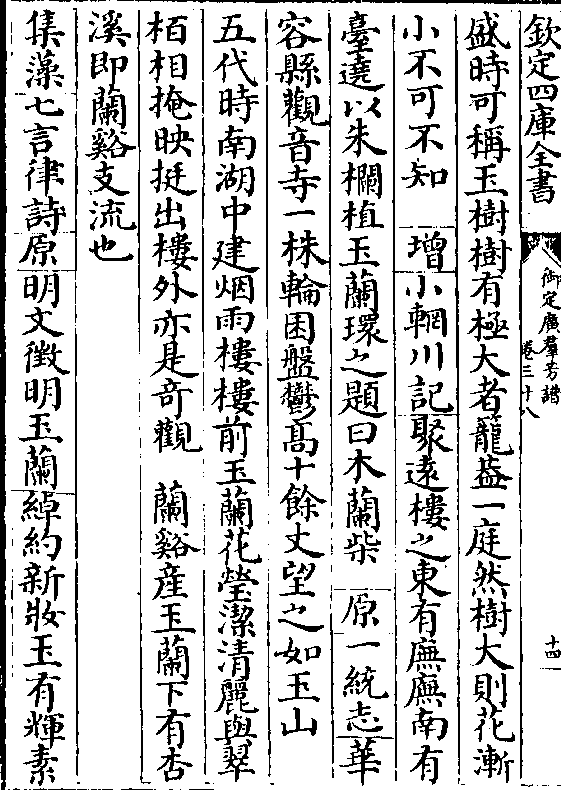 欽定四庫全書
御定廣羣芳譜
卷三十八
十四
盛時可稱玉樹樹有極大者籠葢一庭然樹大則花漸
小不可不知　增小輞川記聚遠樓之東有廡廡南有
臺遶以朱欄植玉蘭環之題曰木蘭柴　原一統志華
容縣觀音寺一株輪囷盤鬱高十餘丈望之如玉山
五代時南湖中建烟雨樓樓前玉蘭花瑩潔清麗與翠
栢相掩映挺出樓外亦是奇觀　蘭谿產玉蘭下有杏
溪即蘭谿支流也
集藻七言律詩原明文徵明玉蘭綽約新妝玉有輝素